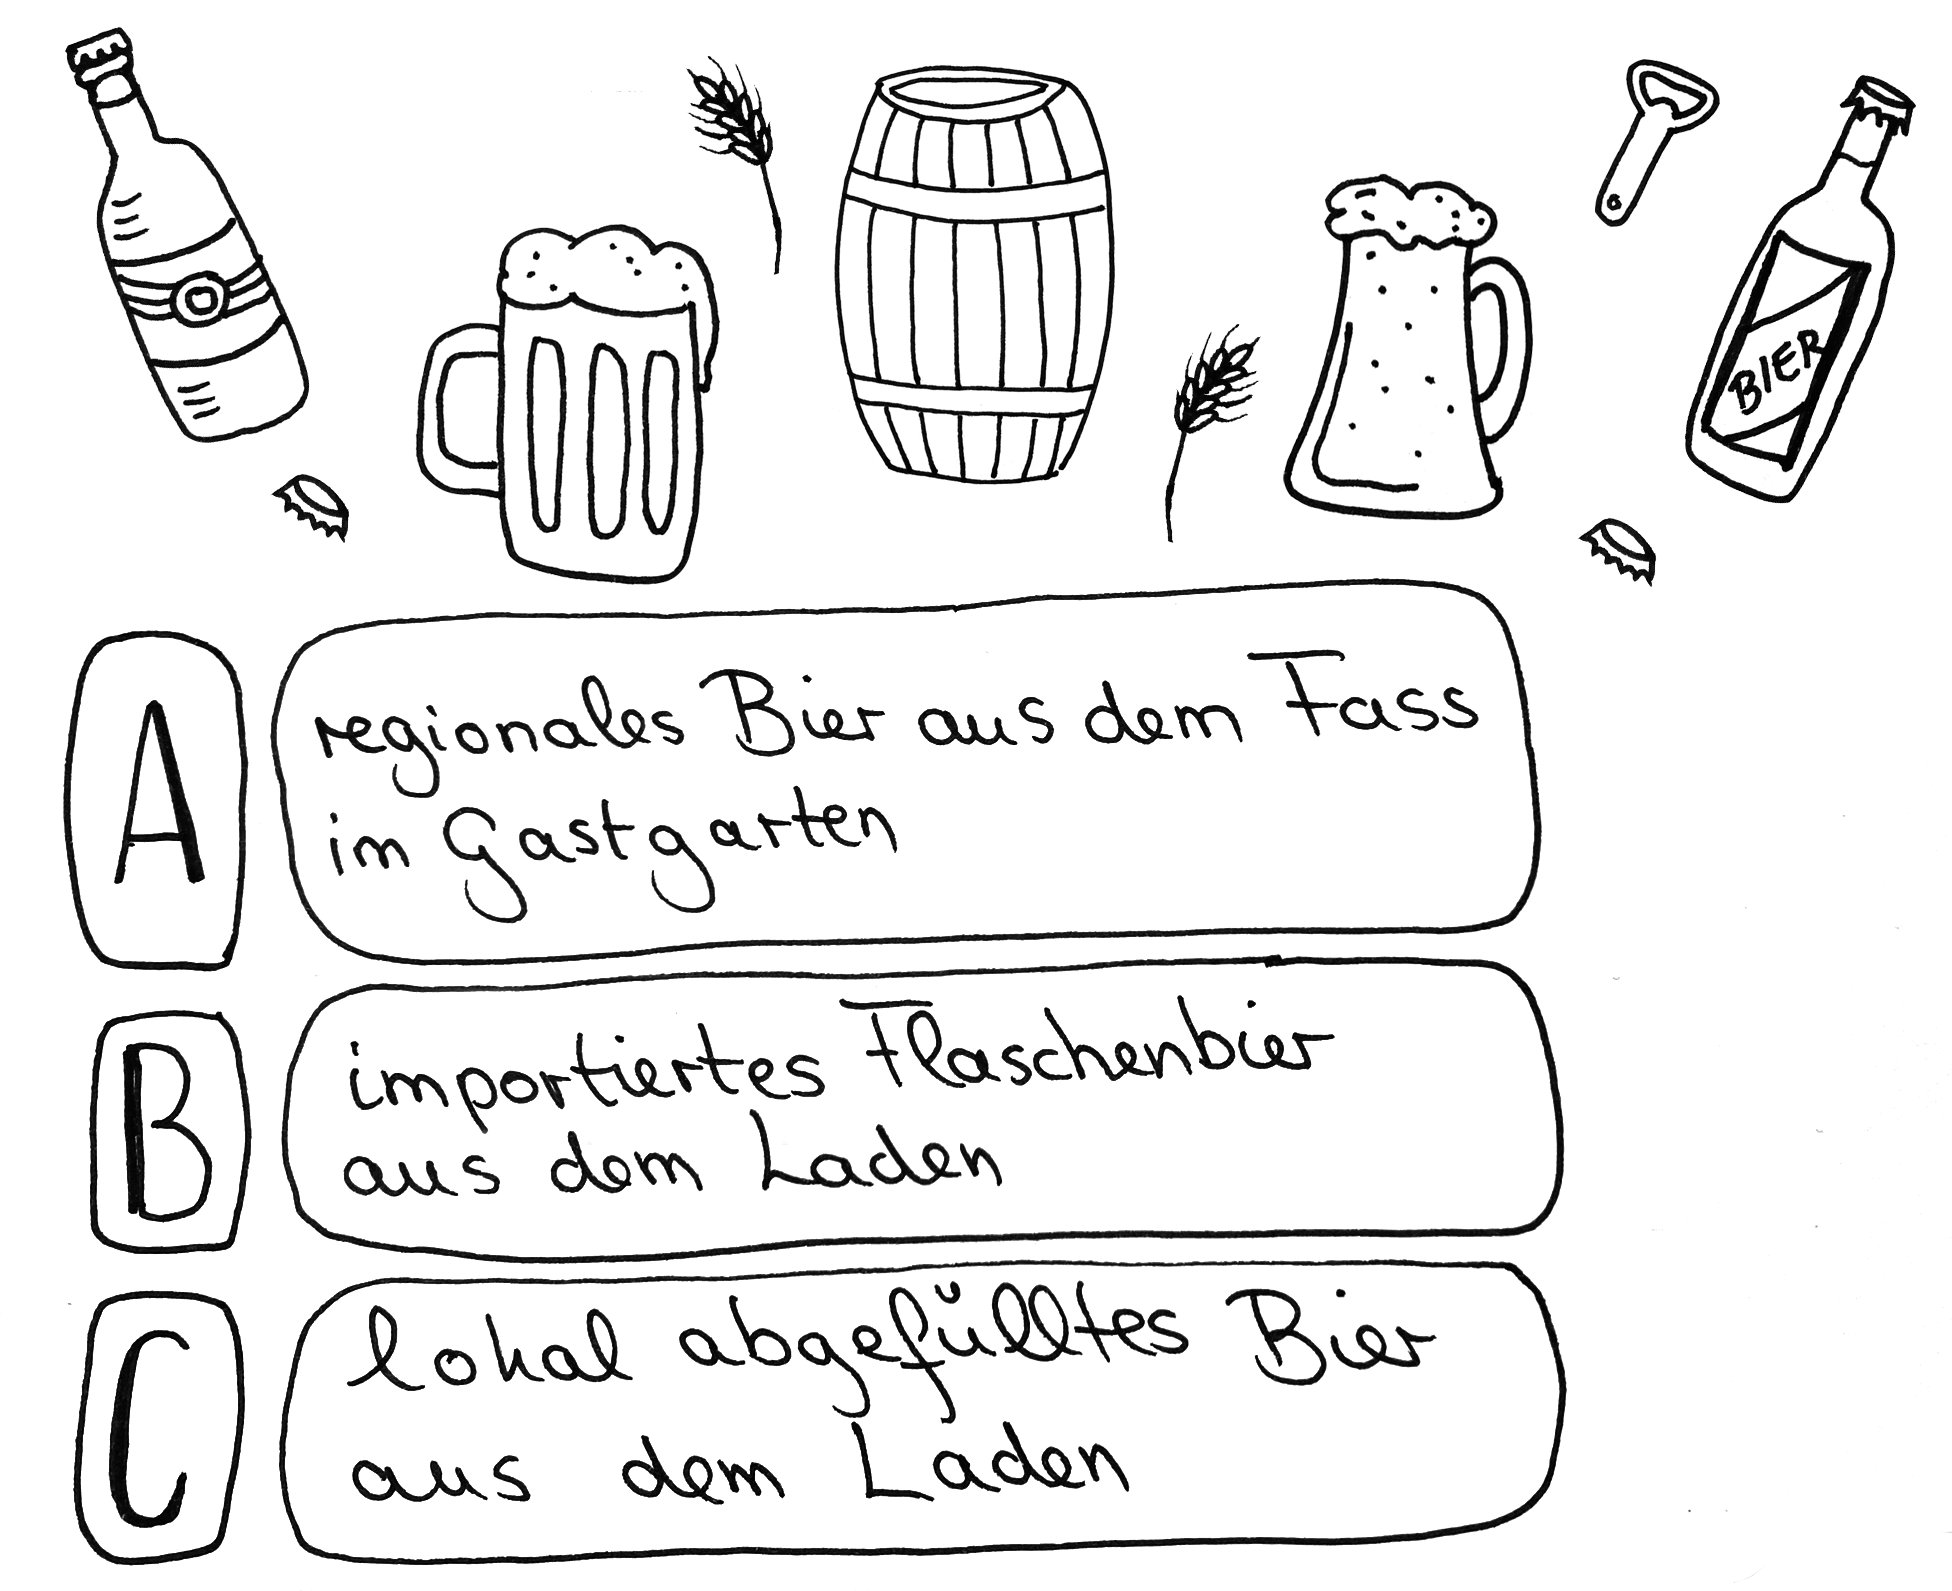 BIER
A
regionales Bier aus dem Fass
im Gastgarten
B
importiertes Flaschenbier
aus dem Laden
C
lokal abgefülltes Bier
aus dem Laden